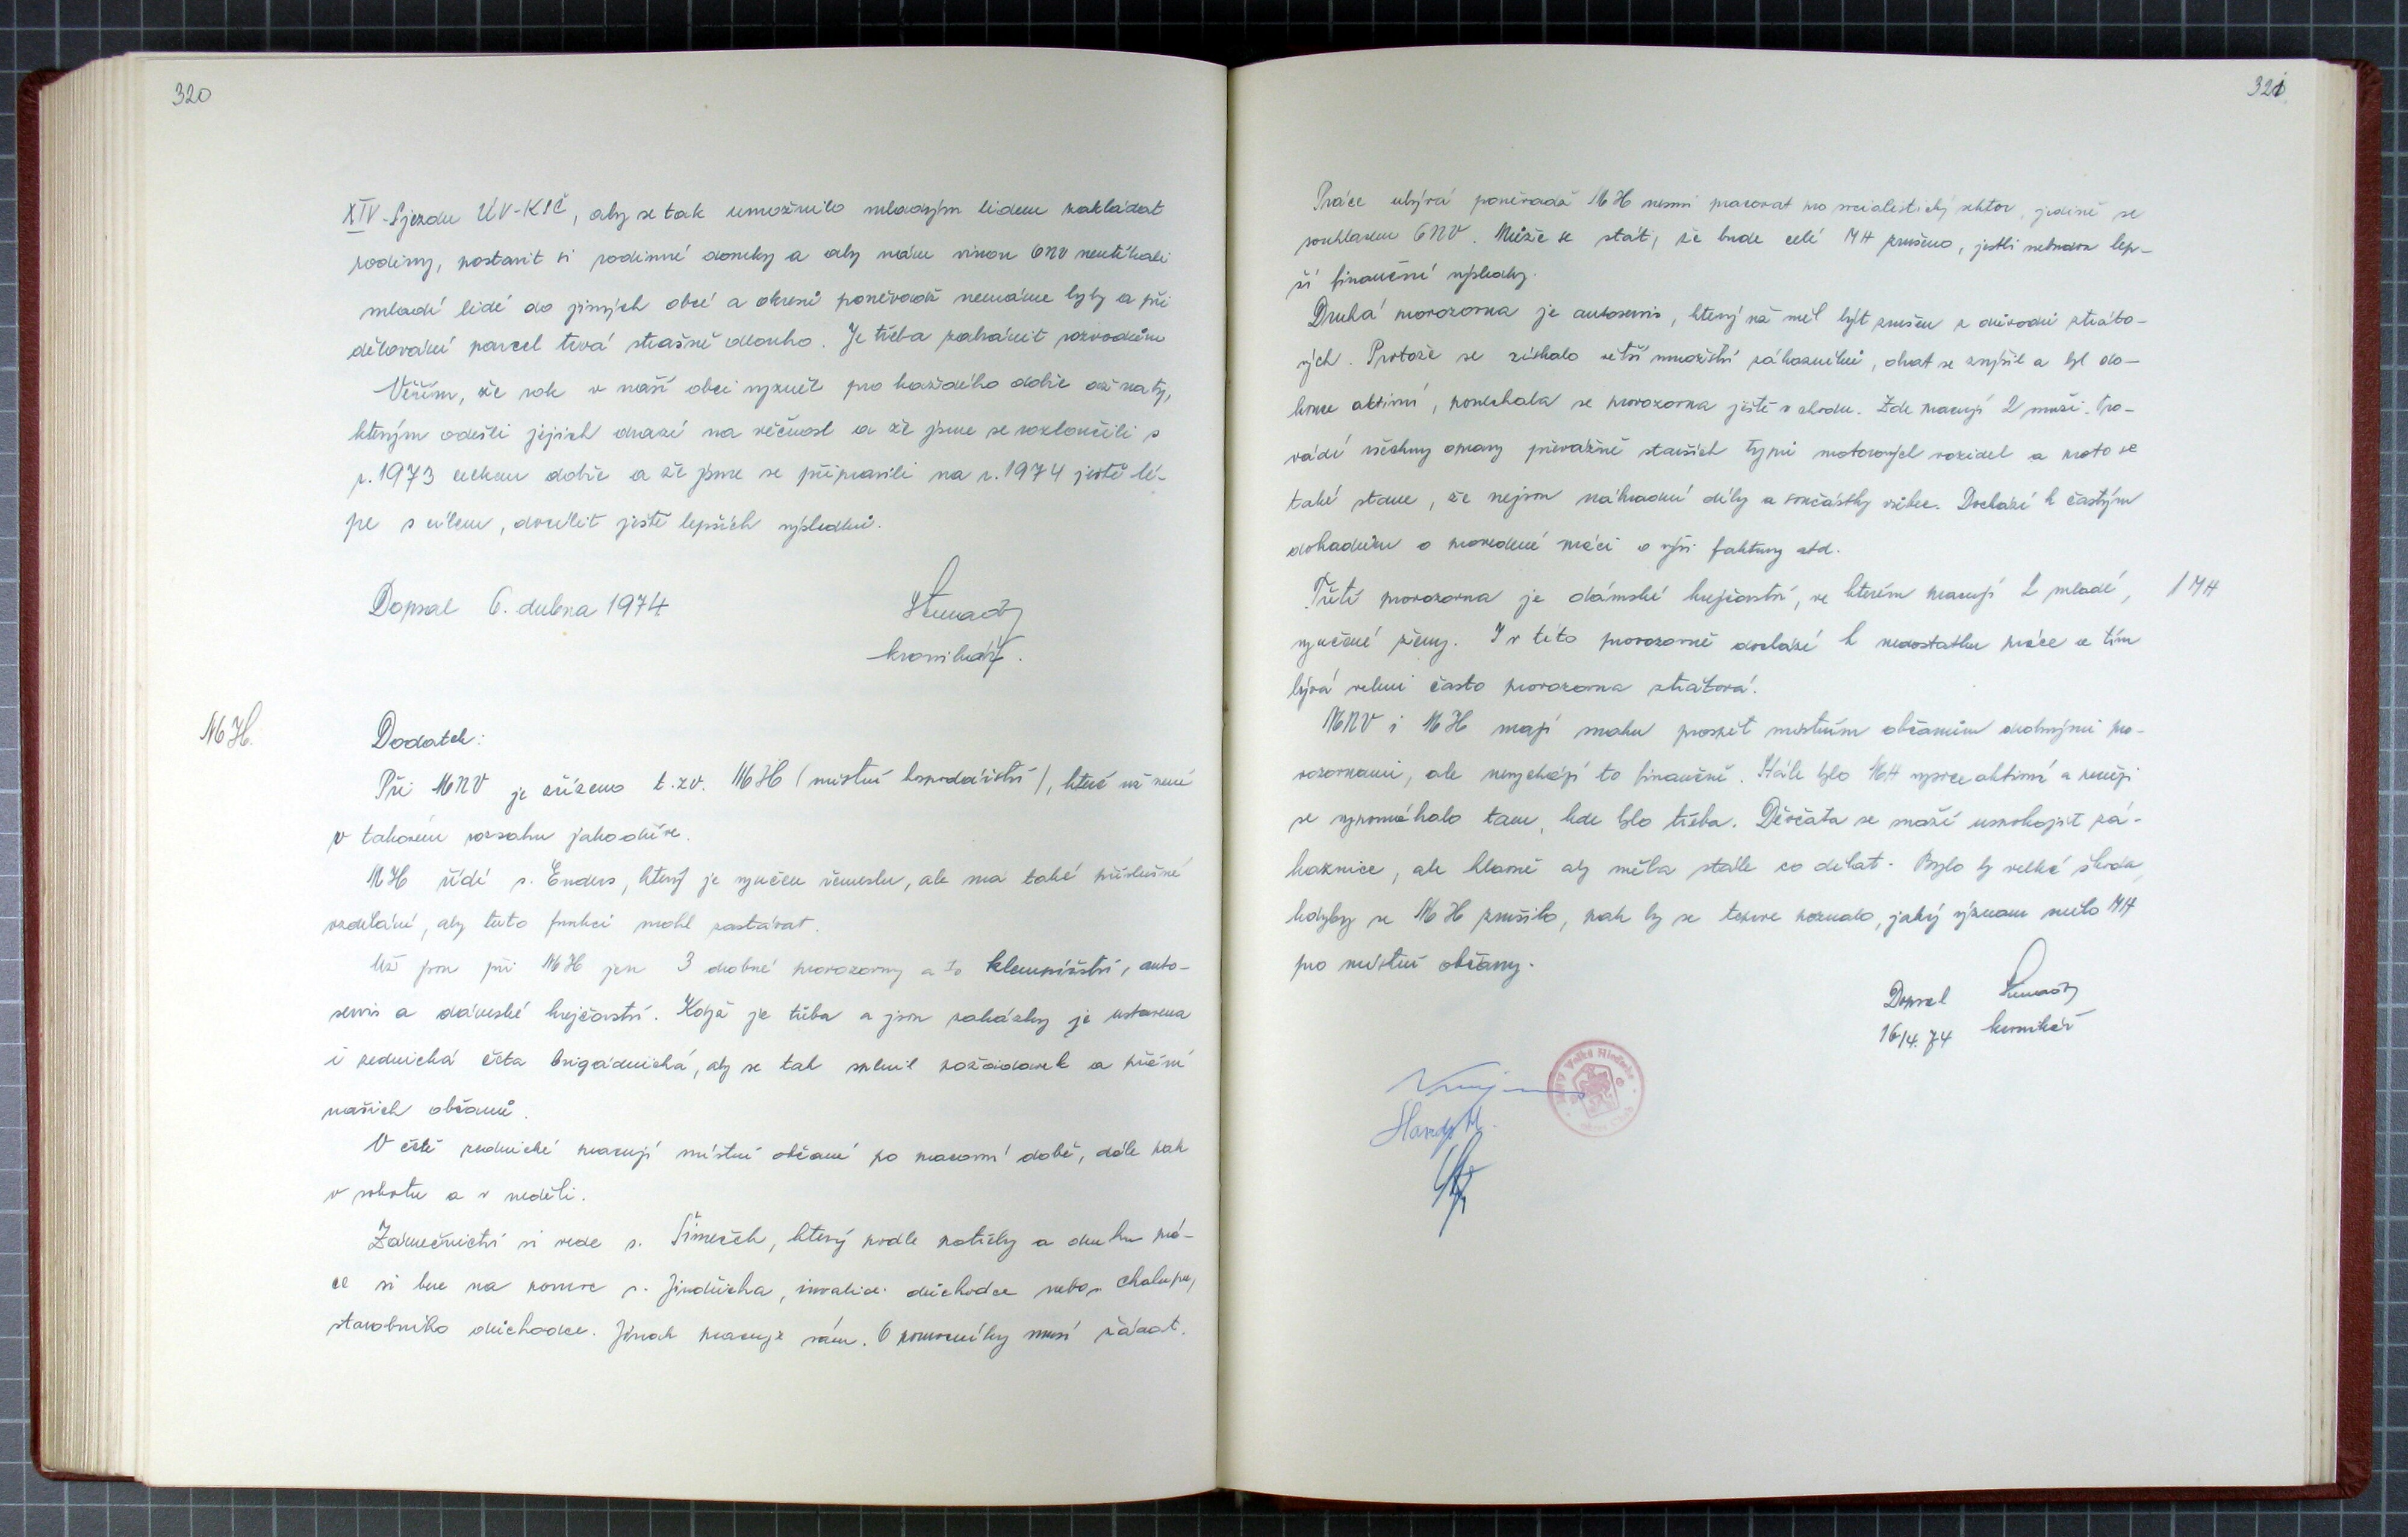 320
XIV. Sjezdu ÚV-KSČ, aby se tak umožnilo mladým lidem zakládat
rodiny, postavit si rodinné domky a aby nám vinou ONV neutíkali
mladí lidé do jiných obcí a okresů poněvadž nemáme byty a při
dělování parcel trvá strašně dlouho. Je třeba zabránit rozvodům
Věřím, že rok v naší obci vyzněl pro každého dobře až na ty,
kterým odešli jejich drazí na věčnost a že jsme se rozloučili s
r. 1973 celkem dobře a že jsme se připravili na r. 1974 ještě lé-
pe s cílem, docílit ještě lepších výsledků.
Dopsal 6. dubna 1974
kronikář.
MH.
Dodatek:
Při MNV je zřízeno t.zv. MH (místní hospodářství), které už není
v takovém rozsahu jako dříve.
MH řídí s. Enders, který je vyučen řemeslu, ale má také příslušné
vzdělání, aby tuto funkci mohl zastávat.
Už jsou při MH jen 3 drobné provozovny a to klempířství, auto-
servis a dámské krejčovství. Když je třeba a jsou zakázky je ustavena
i zednická četa brigádnická, aby se tak splnil požadavek a přání
našich občanů.
V četě zednické pracují místní občané po pracovní době, dále pak
v sobotu a v neděli.
Zámečnictví si vede s. Šimeček, který podle potřeby a druhu prá-
ce si bere na pomoc s. Jindřicha, invalid. důchodce nebo s. Chalupu,
starobního důchodce. Jinak pracuje sám. O pomocníky musí žádat.
321
Práce ubývá poněvadž MH nesmí pracovat pro socialistický sektor, jedině se
souhlasem ONV. Může se stát, že bude celé MH zrušeno, jestli nebudou lep-
ší finanční výsledky.
Druhá provozovna je autoservis, který už měl být zrušen z důvodů ztráto-
vých. Protože se získalo větší množství zákazníků, obrat se zvýšil a byl do-
konce aktivní, ponechala se provozovna ještě v chodu. Zde pracují 2 muži. Pro-
vádí všechny opravy převážně starších typů motorových vozidel a proto se
také stane, že nejsou náhradní díly a součástky vůbec. Dochází k častým
dohadům o provedené práci o výši faktury atd.
Třetí provozovna je dámské krejčovství, ve kterém pracují 2 mladé,
MH
vyučené ženy. I v této provozovně dochází k nedostatku práce a tím
bývá velmi často provozovna ztrátová.
MNV i MH mají snahu prospět místním občanům drobnými pro-
vozovnami, ale nevychází to finančně. Stále bylo MH vysoce aktivní a penězi
se vypomáhalo tam, kde bylo třeba. Děvčata se snaží uspokojit zá-
kaznice, ale hlavně aby měla stále co dělat. Bylo by velká škoda,
kdyby se MH zrušilo, pak by se teprve poznalo, jaký význam mělo MH
pro místní občany.
Dopsal
16/4. 74 kronikář
MNV Velké Hleďsebe